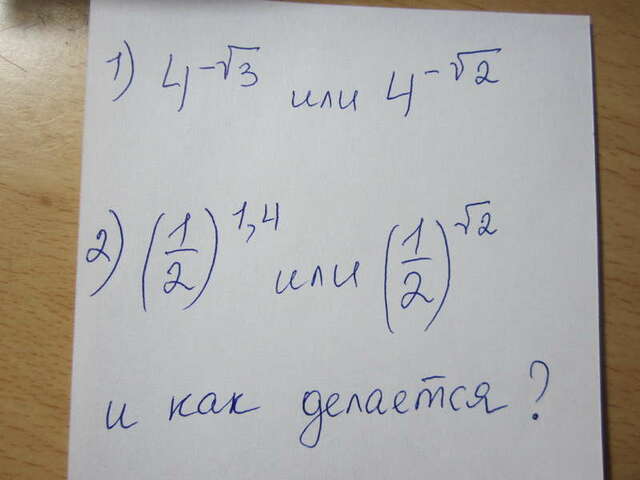 1) 4^{-√3} или 4^{-√2}
2) (1/2)^{1,4} или (1/2)^{√2}
и как делается?